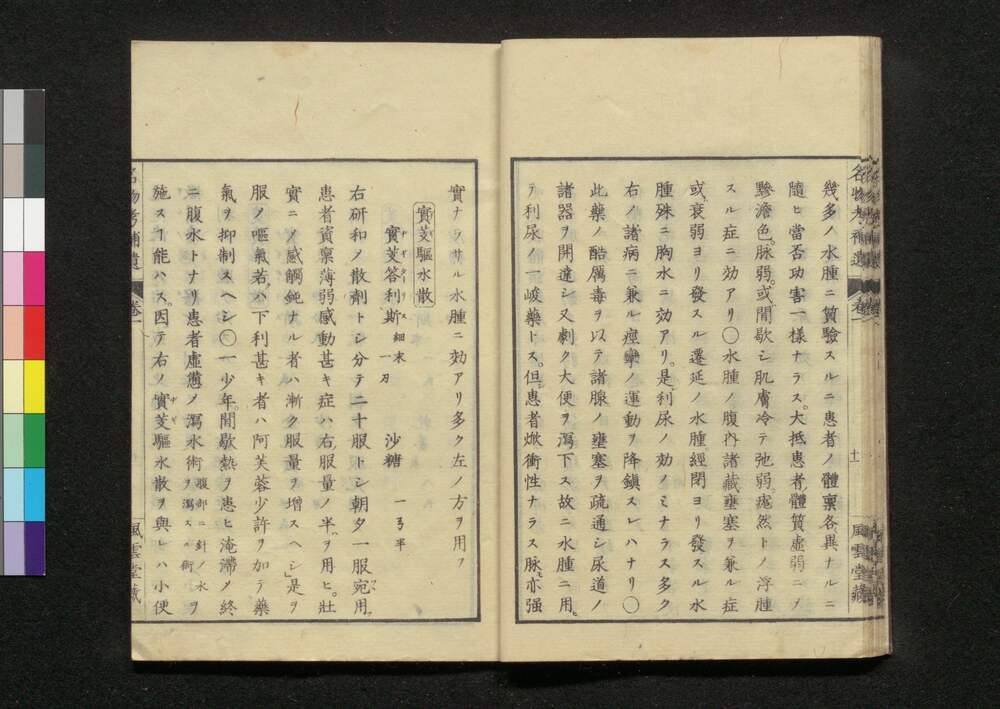 幾多ノ水腫ニ質驗スルニ患者ノ體稟各異ナルニ
隨ヒ當否功害一樣ナラス。大抵患者體質虚弱ニメ
黲澹色。脉弱。或間歇シ肌膚冷テ弛弱厖然トノ浮腫
スル症ニ効アリ〇水腫ノ腹内諸藏壅塞ヲ兼ル症
或衰弱ヨリ發スル遷延ノ水腫經閉ヨリ發スル水
腫殊ニ胸水ニ効アリ。是利尿ノ効ノミナラス多ク
右ノ諸病ニ兼ル痙攣ノ運動ヲ降鎮スレハナリ〇
此藥ノ酷厲毒ヲ以テ諸腺ノ壅塞ヲ疏通シ尿道ノ
諸器ヲ開達シ又劇ク大便ヲ瀉下ス故ニ水腫ニ用ヒ
テ利尿ノ一峻藥トス。但シ患者焮衝性ナラス脉モ亦强
名物考補遺 卷一 十一 風雲堂藏
實ナラサル水腫ニ効アリ多ク左ノ方ヲ用フ
實芰驅水散
實芰荅利斯 細末一刄 沙糖 一弓半
右研和ノ散劑トシ分テ二十服トシ朝夕一服宛用フ
患者資稟薄弱感動甚キ症ハ右服量ノ半ヲ用ヒ。壯
實ニメ感觸鈍ナル者ハ漸ク服量ヲ增スヘシ是ヲ
服ノ嘔氣若クハ下利甚キ者ハ阿芙蓉少許ヲ加テ藥
氣ヲ抑制スヘシ〇一少年間歇熱ヲ患ヒ淹滯ノ終
ニ腹水トナリ患者虚憊ノ瀉水術 腹部ニ針ノ水ヲ瀉スルノ術 ヲ
施スヿ能ハス。因テ右ノ實芰驅水散ヲ與レハ小便
名物考補遺 卷一 風雲堂藏